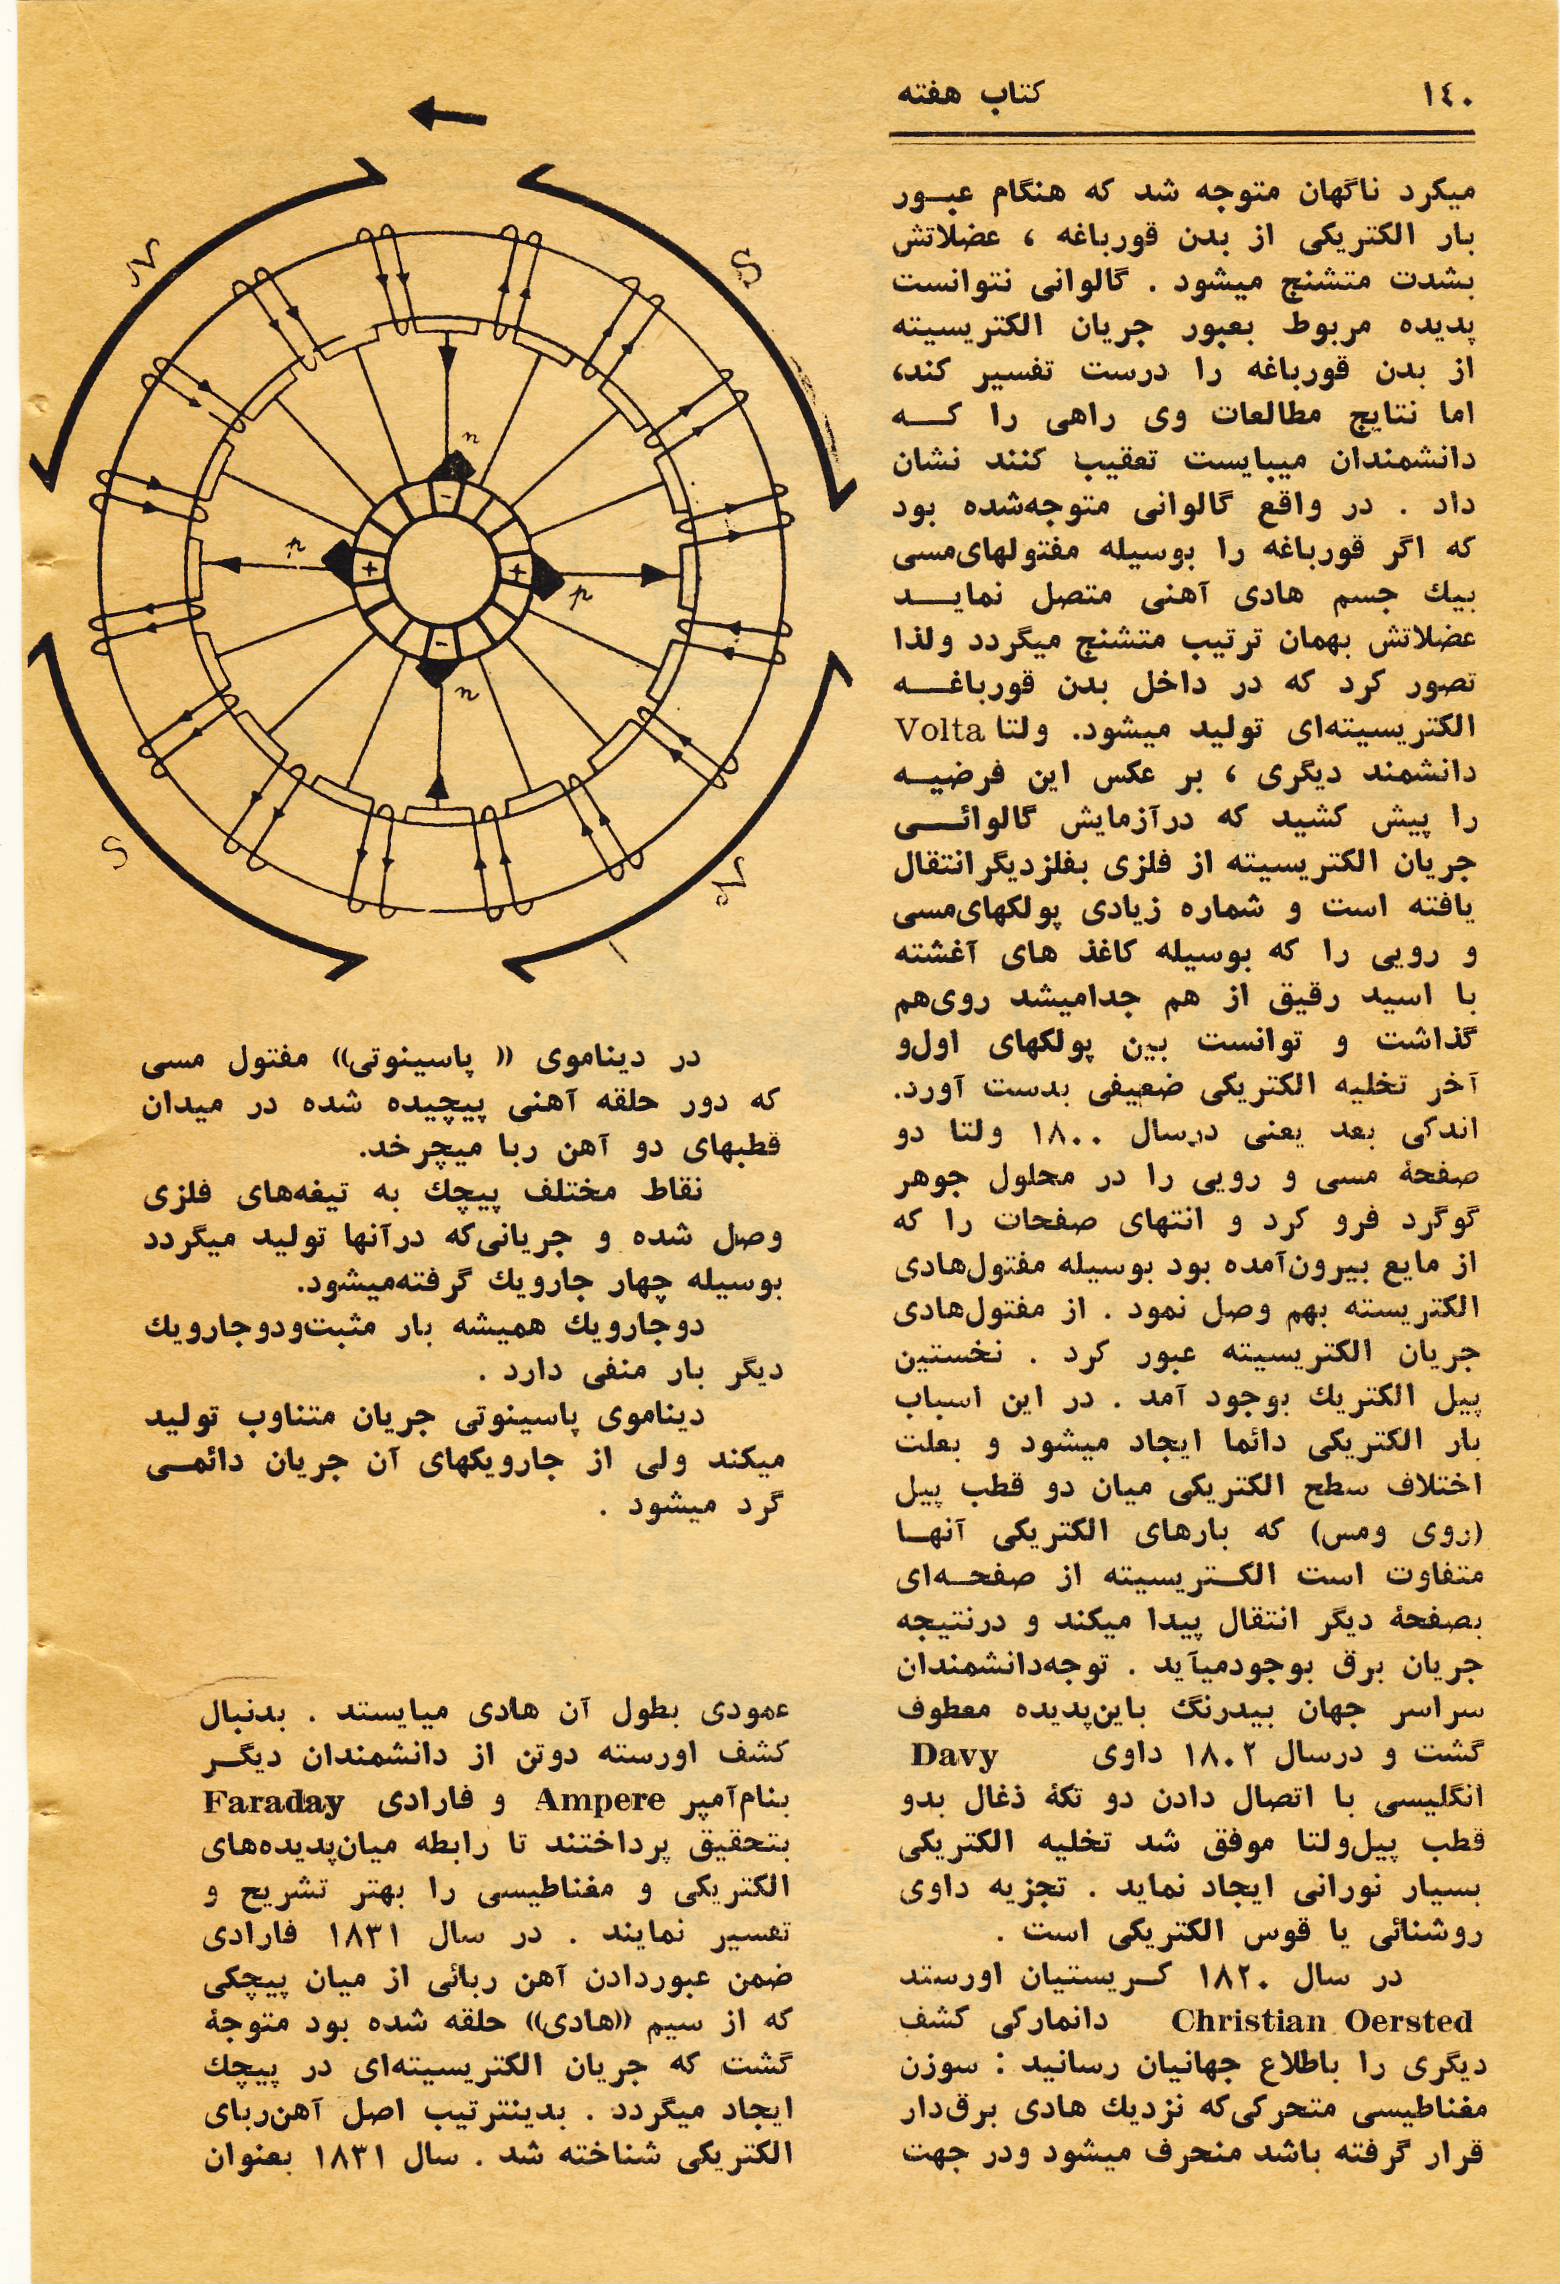 ۱٤۰
کتاب هفته
میکرد ناگهان متوجه شد که هنگام عبــور
بار الکتریکی از بدن قورباغه ، عضلاتش
بشدت متشنج میشود . گالوانی نتوانست
پدیده مربوط بعبور جریان الکتریسیته
از بدن قورباغه را درست تفسیر کند،
اما نتایج مطالعات وی راهی را کــه
دانشمندان میبایست تعقیب کنند نشان
داد . در واقع گالوانی متوجه‌شده بود
که اگر قورباغه را بوسیله مفتولهای‌مسی
بیك جسم هادی آهنی متصل نمایــد
عضلاتش بهمان ترتیب متشنج میگردد ولذا
تصور کرد که در داخل بدن قورباغــه
الکتریسیته‌ای تولید میشود. ولتا Volta
دانشمند دیگری ، بر عکس این فرضیــه
را پیش کشید که درآزمایش گالوانــی
جریان الکتریسیته از فلزی بفلزدیگرانتقال
یافته است و شماره زیادی پولکهای‌مسی
و رویی را که بوسیله کاغذ های آغشته
با اسید رقیق از هم جدامیشد روی‌هم
گذاشت و توانست بین پولکهای اول‌و
آخر تخلیه الکتریکی ضعیفی بدست آورد.
اندکی بعد یعنی درسال ۱۸۰۰ ولتا دو
صفحۀ مسی و رویی را در محلول جوهر
گوگرد فرو کرد و انتهای صفحات را که
از مایع بیرون‌آمده بود بوسیله مفتول‌هادی
الکتریسته بهم وصل نمود . از مفتول‌هادی
جریان الکتریسیته عبور کرد . نخستین
پیل الکتریك بوجود آمد . در این اسباب
بار الکتریکی دائما ایجاد میشود و بعلت
اختلاف سطح الکتریکی میان دو قطب پیل
(روی ومس) که بارهای الکتریکی آنهــا
متفاوت است الکــتریسیته از صفحــه‌ای
بصفحۀ دیگر انتقال پیدا میکند و درنتیجه
جریان برق بوجودمیآید . توجه‌دانشمندان
سراسر جهان بیدرنگ باین‌پدیده معطوف
گشت و درسال ۱۸۰۲ داوی Davy
انگلیسی با اتصال دادن دو تکۀ ذغال بدو
قطب پیل‌ولتا موفق شد تخلیه الکتریکی
بسیار نورانی ایجاد نماید . تجزیه داوی
روشنائی یا قوس الکتریکی است .
در سال ۱۸۲۰ کــریستیان اورستد
Christian Oersted دانمارکی کشف
دیگری را باطلاع جهانیان رسانید : سوزن
مغناطیسی متحرکی‌که نزدیك هادی برق‌دار
قرار گرفته باشد منحرف میشود ودر جهت
N
S
S
N
n
p
p
n
-
+
+
-
در دیناموی « پاسینوتی» مفتول مسی
که دور حلقه آهنی پیچیده شده در میدان
قطبهای دو آهن ربا میچرخد.
نقاط مختلف پیچك به تیغه‌های فلزی
وصل شده و جریانی‌که درآنها تولید میگردد
بوسیله چهار جارویك گرفته‌میشود.
دوجارویك همیشه بار مثبت‌ودوجارویك
دیگر بار منفی دارد .
دیناموی پاسینوتی جریان متناوب تولید
میکند ولی از جارویکهای آن جریان دائمــی
گرد میشود .
عمودی بطول آن هادی میایستد . بدنبال
کشف اورسته دوتن از دانشمندان دیگــر
بنام‌آمپر Ampere و فارادی Faraday
بتحقیق پرداختند تا رابطه میان‌پدیده‌های
الکتریکی و مغناطیسی را بهتر تشریح و
تفسیر نمایند . در سال ۱۸۳۱ فارادی
ضمن عبوردادن آهن ربائی از میان پیچکی
که از سیم «هادی» حلقه شده بود متوجۀ
گشت که جریان الکتریسیته‌ای در پیچك
ایجاد میگردد . بدینترتیب اصل آهن‌ربای
الکتریکی شناخته شد . سال ۱۸۳۱ بعنوان